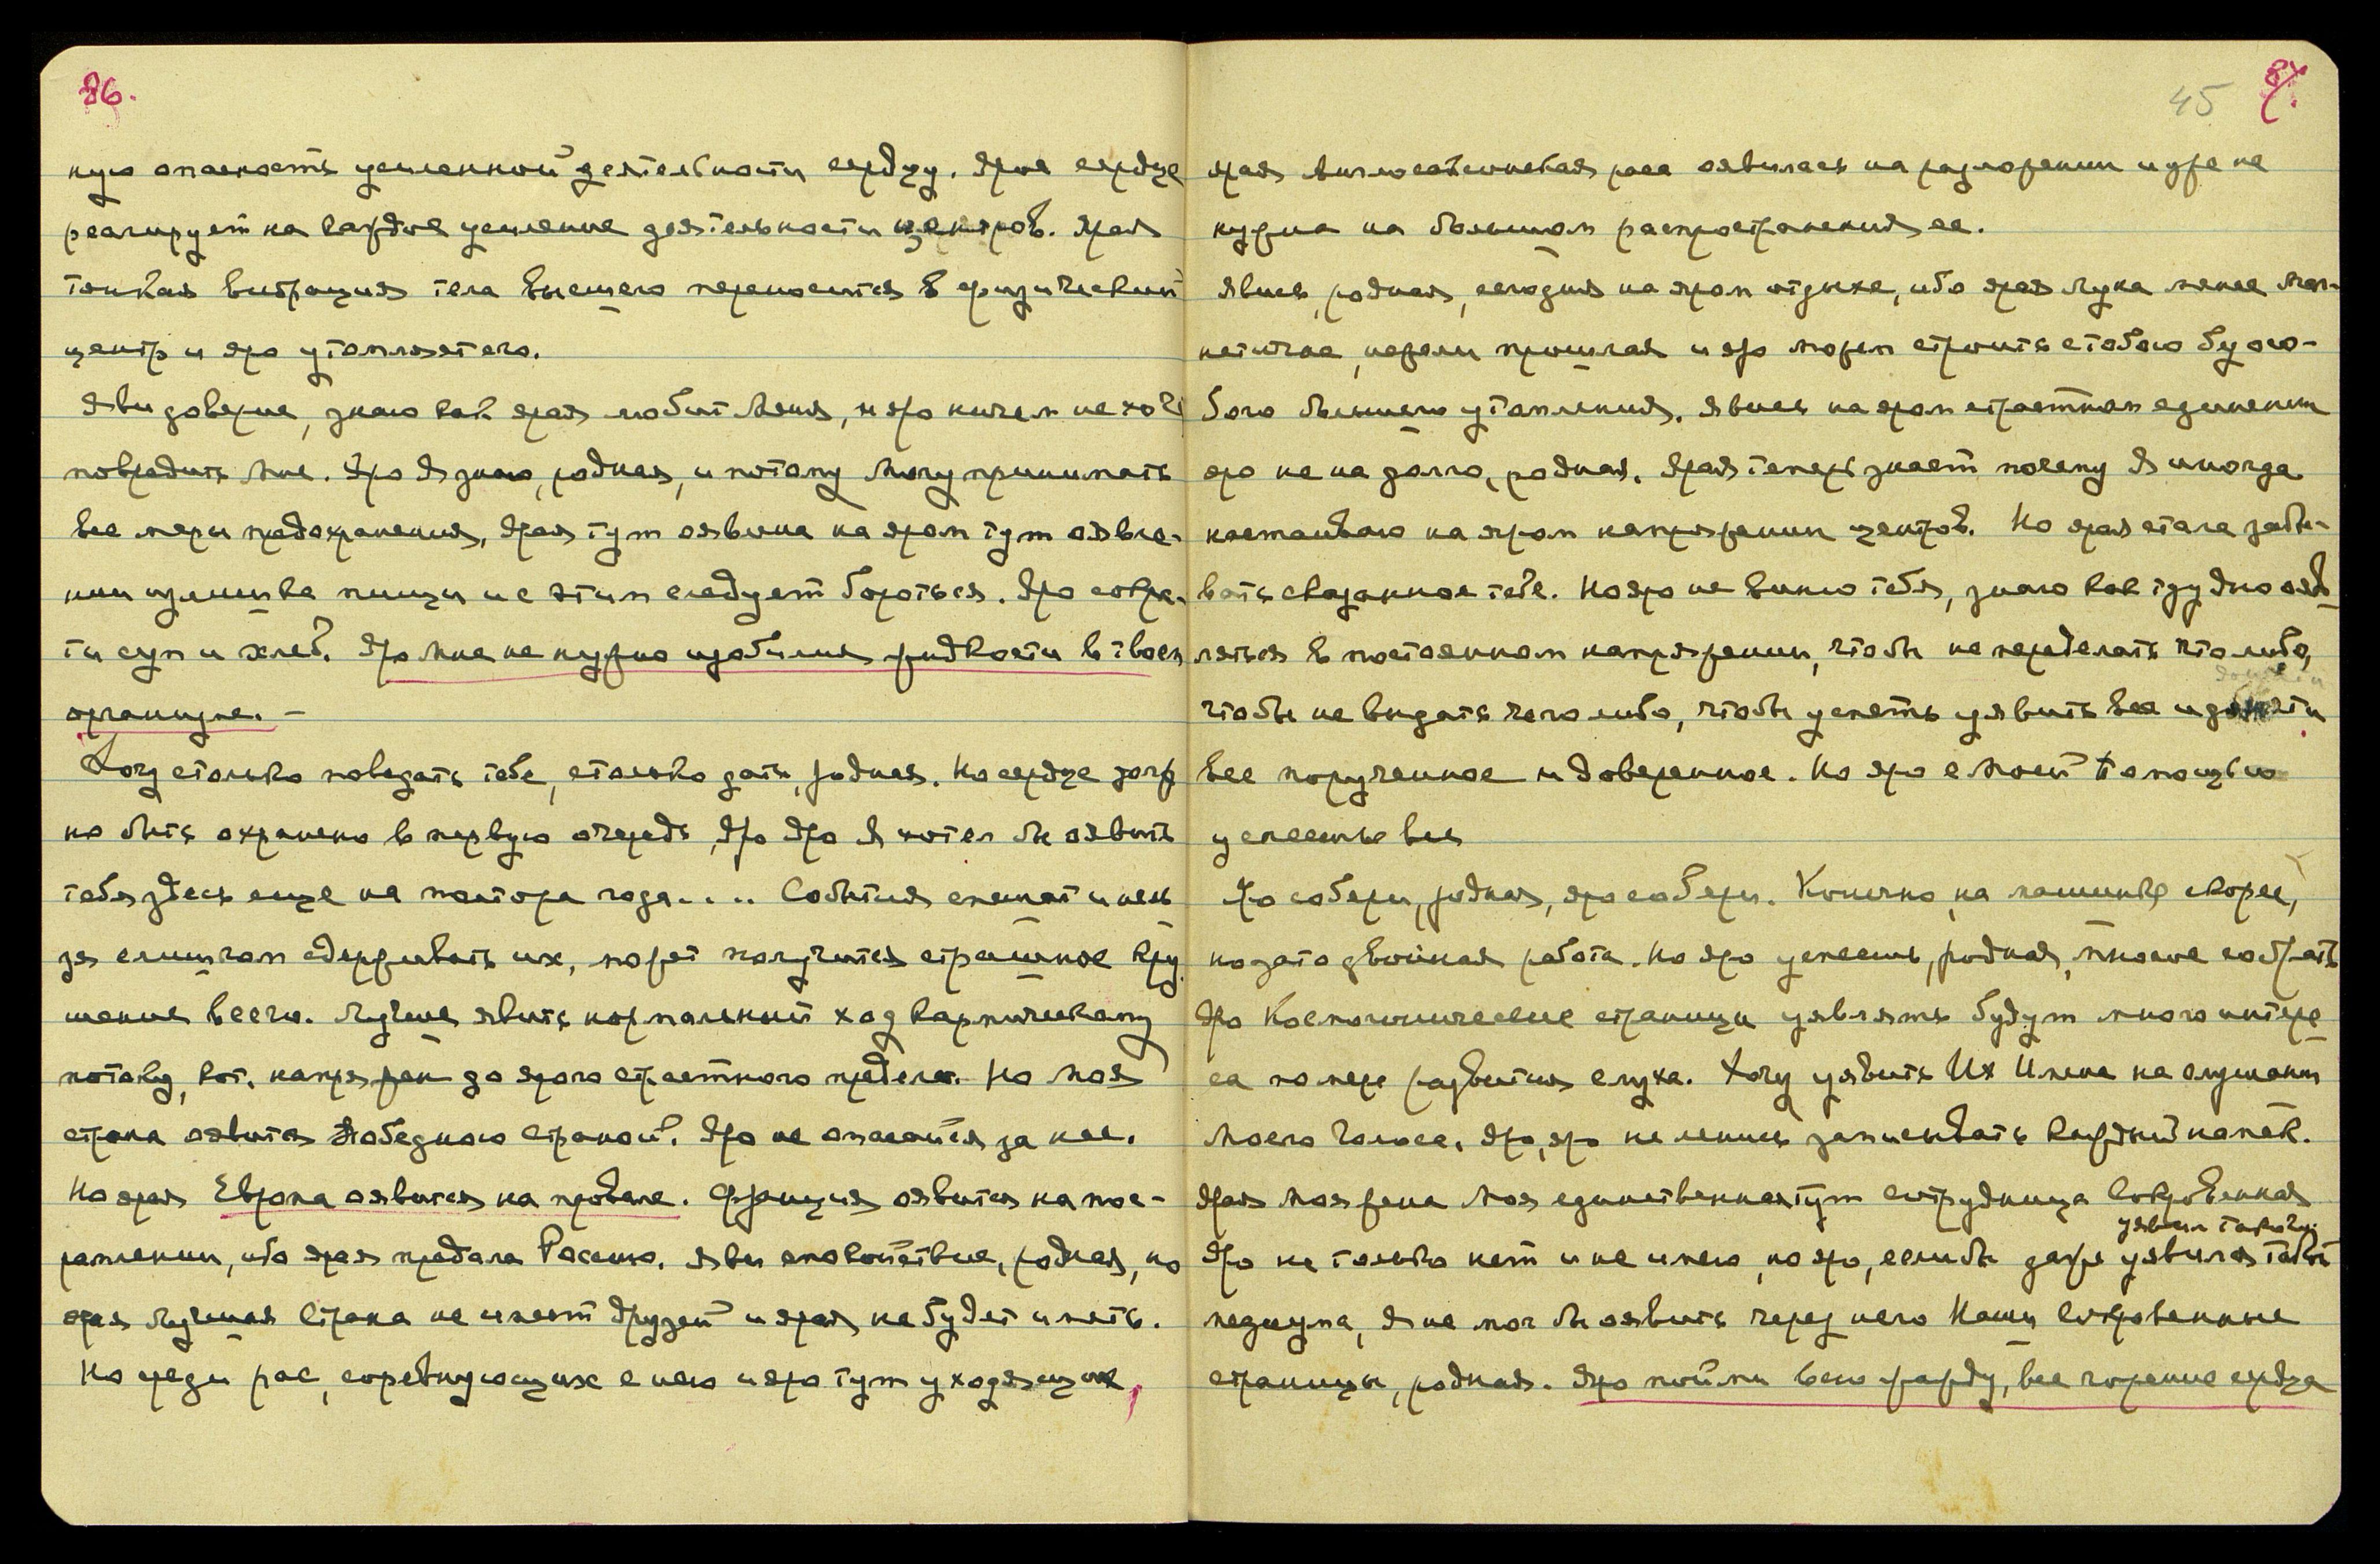 86.
ную опасность усиленной деятельности сердцу. Ярое сердце
реагирует на каждое усиление деятельности центров. Ярая
тонкая вибрация тела высшего переносится в физический
центр и яро утомляет его.
Яви доверие, знаю как ярая любит Меня, и яро ничем не хоч
повредить Мне. Яро Я знаю, родная, и потому Могу принимать
все меры предохранения, Ярая тут оявлена на яром тут оявле-
нии излишка пищи и с этим следует бороться. Яро сокра-
ти суп и хлеб. Яро Мне не нужно изобилия жидкости в твоем
организме. –
Хочу столько поведать тебе, столько дать, родная. Но сердце долж
но быть охранено в первую очередь, Яро Яро Я хотел бы оявить
тебя здесь еще на полтора года.... События спешат и нель
зя слишком сдерживать их, может получиться страшное кру
шение всего. Лучше явить нормальный ход кармическому
потоку, кот. напряжен до ярого страстного предела. Но Моя
страна оявится Победною Страной. Яро не опасайся за нее.
Но ярая Европа оявится на провале. Франция оявится на пос-
рамлении, ибо ярая предала Россию. Яви спокойствие, родная, но
ярая Лучшая Страна не имеет друзей и ярая не будет иметь.
Но среди рас, соревнующихся с нею и яро тут уходящих,
45
87.
ярая англосаксонская раса оявилась на разложении и уже не
нужна на большом распространении ее.
Явись, родная, сегодня на яром отдыхе, ибо ярая Луна менее маг-
нетична, нежели прошлая и яро можем строить с тобою без осо-
бого бывшего утомления. Явись на яром страстном единении
яро не на долго, родная. Ярая теперь знает почему Я иногда
настаиваю на яром напряжении центров. Но ярая стала забы-
вать сказанное тебе. Но яро не виню тебя, знаю как трудно ояв
ляться в постоянном напряжении, чтобы не переделать что либо,
чтобы не выдать чего либо, чтобы успеть уявить все и
все порученное и доверенное. Но яро с Моей Помощью
успеешь все
Яро собери, родная, яро собери. Конечно, на машинке скорее,
но зато двойная работа. Но яро успеешь, родная, многое собрать
Яро Космогонические страницы уявлять будут много интере
са по мере развития слуха. Хочу уявить Их Имена на слушании
Моего Голоса. Яро, яро не ленись записывать каждый намек.
Ярая Моя жена Моя единственная тут сотрудница Сокровенная
уявил такого
Яро не только нет и не имею, но яро, если бы даже уявился такой
медиума, Я не мог бы оявить через него Наши Сокровенные
страницы, родная. Яро пойми всю жажду, все горение сердца